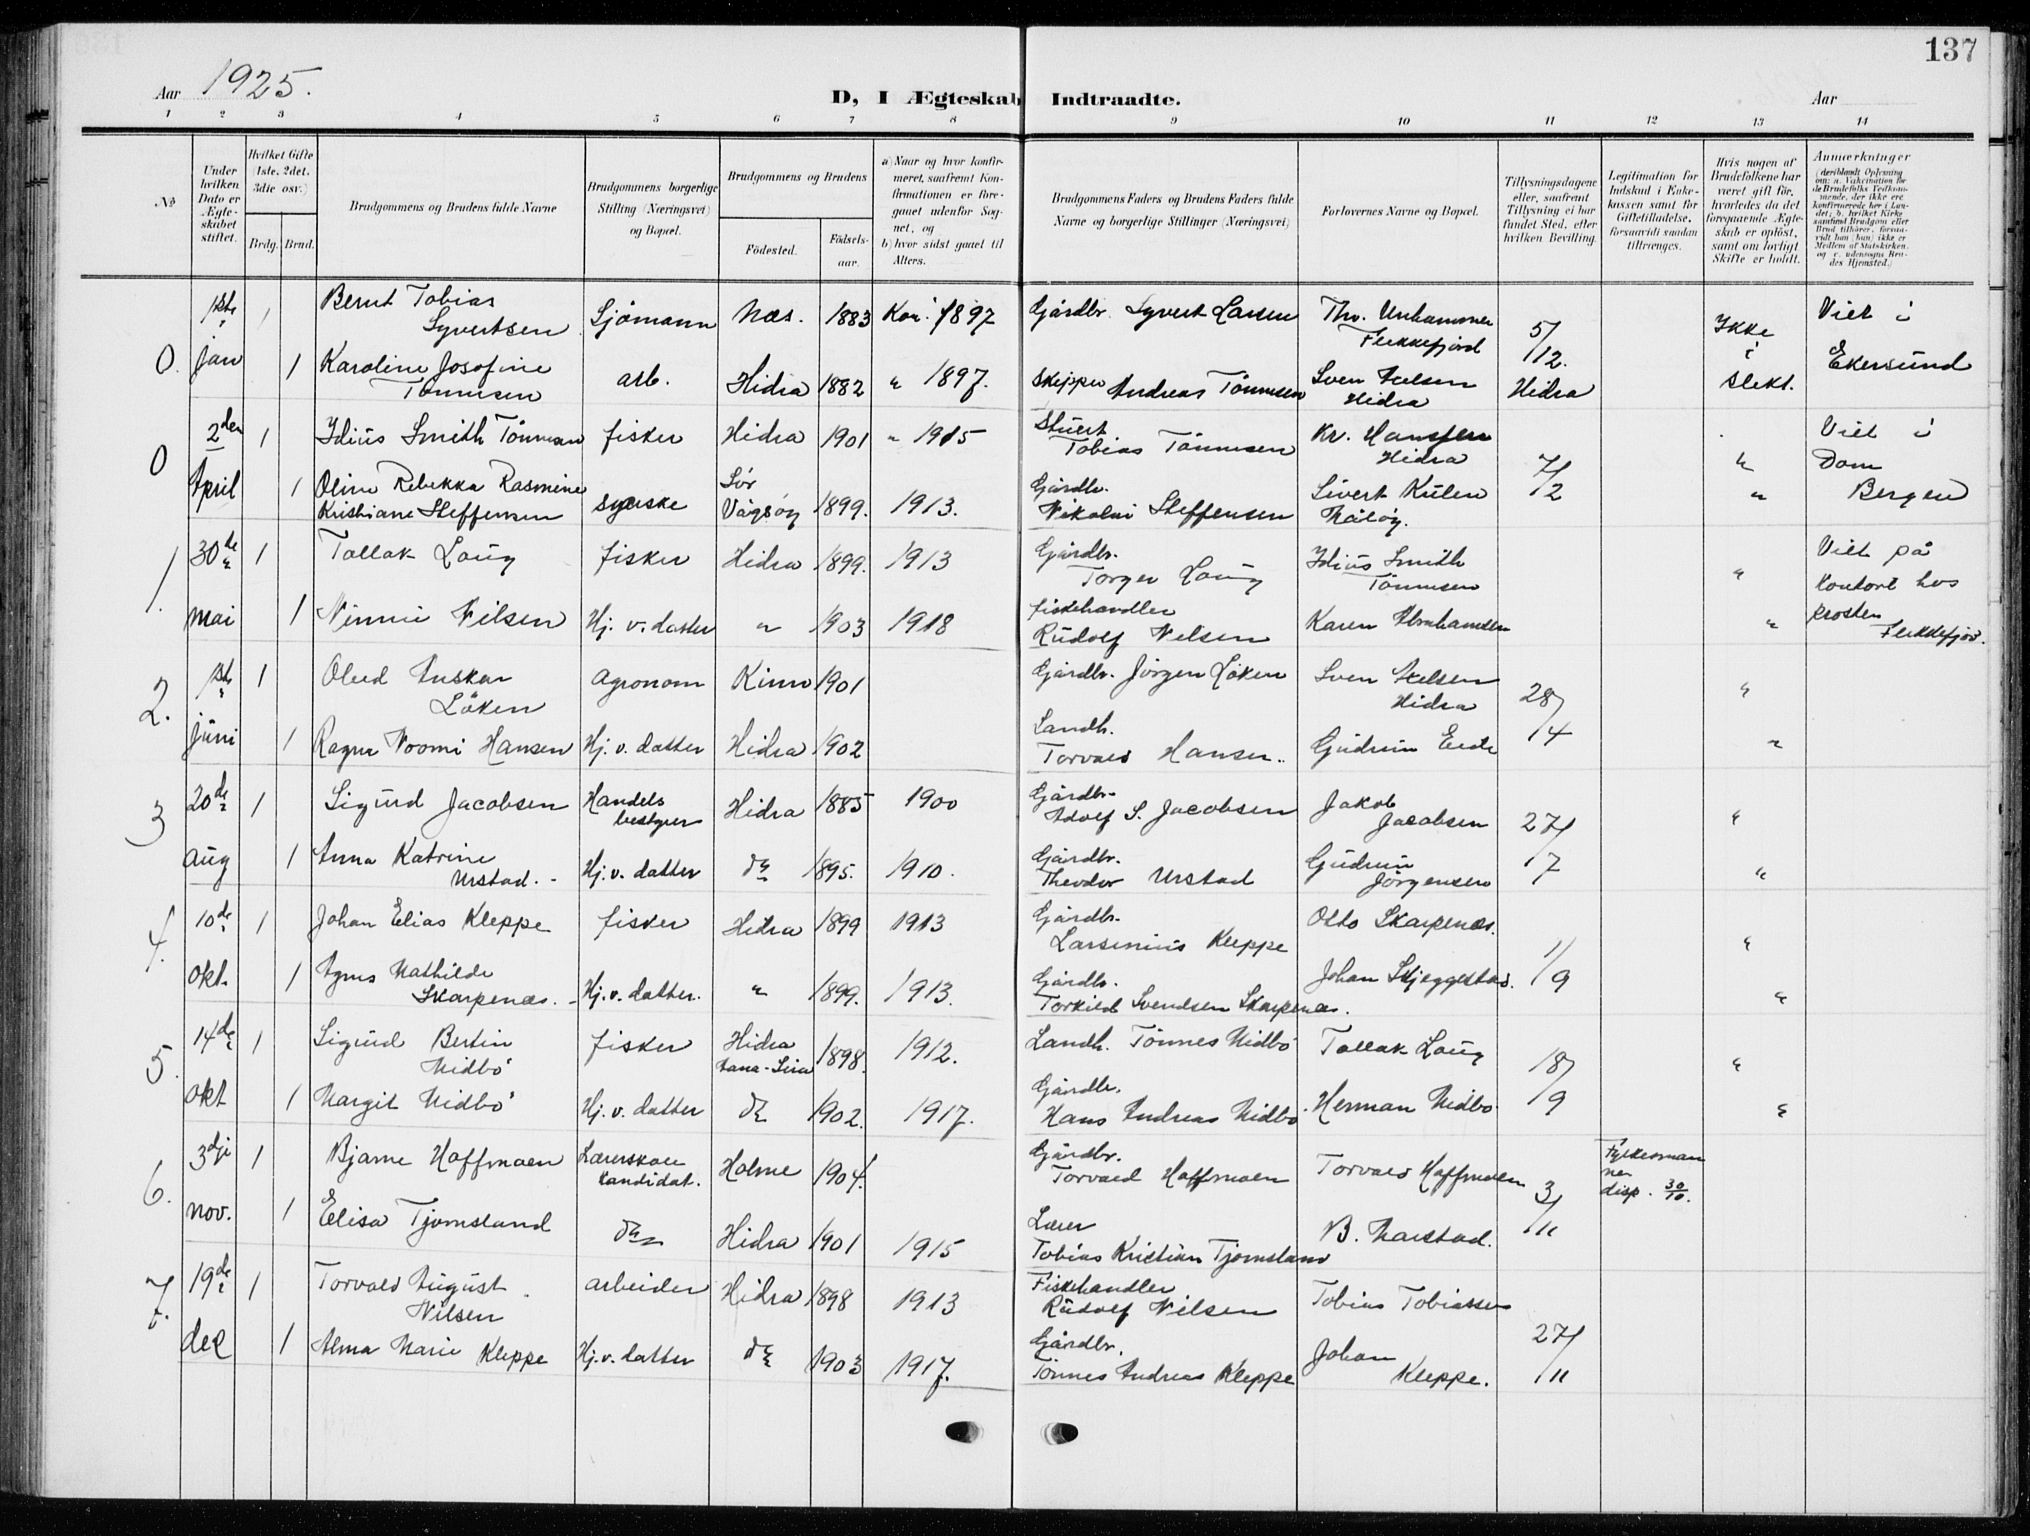 137
Aar 1925.
D, I Ægteskab Indtraadte.
Aar
1 2 3 4 5 6 7 8 9 10 11 12 13 14
№
Under hvilken Dato er Ægteskabet stiftet.
Hvilket Gifte (1ste, 2det, 3die osv.)
Brdg. Brud.
Brudgommens og Brudens fulde Navne
Brudgommens borgerlige Stilling (Næringsvei) og Bopæl.
Brudgommens og Brudens
Födested.
Födselsaar.
a) Naar og hvor konfirmeret, saafremt Konfirmationen er foregaaet udenfor Sognet, og
b) hvor sidst gaaet til Alters.
Brudgommens Faders og Brudens Faders fulde Navne og borgerlige Stillinger (Næringsvei)
Forlovernes Navne og Bopæl.
Tillysningsdagene eller, saafremt Tillysning ei har fundet Sted, efter hvilken Bevilling.
Legitimation for Indskud i Enkekassen samt for Giftetilladelse, forsaavidt saadan tiltrænges.
Hvis nogen af Brudefolkene har været gift för, hvorledes da det foregaaende Ægteskab er oplöst, samt om lovligt Skifte er holdt.
Anmærkninger
(deriblandt Oplysning om: a. Vakcination for de Brudefolks Vedkommende, der ikke ere konfirmerede her i Landet; b. hvilket Kirkesamfund Brudgom eller Brud tilhörer, forsaavidt han (hun) ikke er Medlem af Statskirken, og c. udensogns Brudes Hjemsted.)
0. 1ste 1 Bernt Tobias Syvertsen Sjömann Næs. 1883 Kon. 1897 Gårdbr. Syvert Larsen Th. Unhammer Flekkefjord 5/12. Hidra Ikke i slekt. Viet i Ekersund
jan 1 Karoline Josefine Tönnesen arb. Hidra 1882 " 1897. Skipper Andreas Tönnesen Sven Axelsen Hidra
0 2den 1 Idius Smith Tönnesen fisker Hidra 1901 " 1915 Stuert Tobias Tönnesen Kr. Hansen Hidra 7/2 " Viet i Dom Bergen
April 1 Oline Rebekka Rasmine Kristiane Steffensen syerske Sör Vågsöy 1899. 1913. Gårdbr. Nikolai Steffensen Sivert Kulen Måløy. "
1. 30de 1 Tallak Laug fisker Hidra 1899. 1913 Gårdbr. Torger Laug Idius Smith Tönnesen " Viet på kontort hos prosten Flekkefjord.
mai 1 Ninnie Nilsen Hj. v. datter " 1903 1918 fiskehandler Rudolf Nilsen Karen Abrahamsen "
2. 1ste 1 Olud Anskar Löken agronom Kinn 1901 Gårdbr. Jörgen Löken Sven Axelsen Hidra 28/4 "
juni 1 Ragna Noomi Hansen Hj. v. datter Hidra 1902 Landh. Torvald Hansen. Gudrun Eide "
3 20de 1 Sigurd Jacobsen Handels bestyrer Hidra 1885 1900 Gårdbr. Adolf S. Jacobsen Jakob Jacobsen 27/7 "
aug 1 Anna Katrine Urstad. Hj. v. datter do 1895. 1910. Gårdbr. Theodor Urstad Gudrun Jörgensen "
4. 10de 1 Johan Elias Kleppe fisker Hidra 1899 1913 Gårdbr. Larsenius Kleppe Otto Skarpenæs. 1/9 "
okt. 1 Agnes Mathilde Skarpenæs. Hj. v. datter. " 1899. 1913. Gårdbr. Torkild Svendsen Skarpenæs. Johan Skjeggestad. "
5. 14de 1 Sigurd Bertin Midbö fisker Hidra Aana-Sira 1898. 1912. Landh. Tönnes Midbö Tallak Laug 18/9 "
okt 1 Margit Midbö Hj. v. datter do 1902. 1917. Gårdbr. Hans Andreas Midbö Herman Midbö "
6. 3dje 1 Bjarne Hoffmoen Lærerskole kandidat. Holme 1904. Gårdbr. Torvald Hoffmoen Torvald Hoffmoen 3/11 Fylkesmannen disp. 30/10.
nov. 1 Elisa Tjomsland do Hidra 1901 1915 Lærer Tobias Kristian Tjomsland B. Harstad.
7. 19de 1 Torvald August Nilsen arbeider Hidra 1898 1913 Fiskehandler Rudolf Nilsen Tobias Tobiassen 27/11
dec 1 Alma Marie Kleppe Hj. v. datter do 1903 1917. Gårdbr. Tönnes Andreas Kleppe Johan Kleppe.